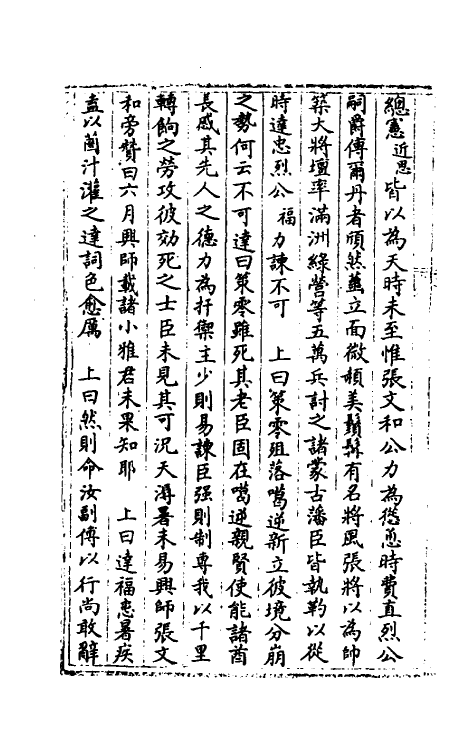 總憲近思皆以為天時未至惟張文和公力為慫恿時費直烈公
嗣爵傅爾丹者頎然藎立面微赬美鬚髯有名將風張將以為帥
築大將壇率滿洲綠營等五萬兵討之諸蒙古藩臣皆執靮以從
時達忠烈公福力諫不可　上曰策零殂落噶逆新立彼境分崩
之勢何云不可達曰策零雖死其老臣固在噶逆親賢使能諸酋
長感其先人之德力為扞禦主少則易諫臣强則制專我以千里
轉餉之勞攻彼効死之士臣未見其可況天溽暑未易興師張文
和旁贊曰六月興師載諸小雅君未果知耶　上曰達福患暑疾
盍以蔨汁灌之達詞色愈厲　上曰然則命汝副傅以行尚敢辭